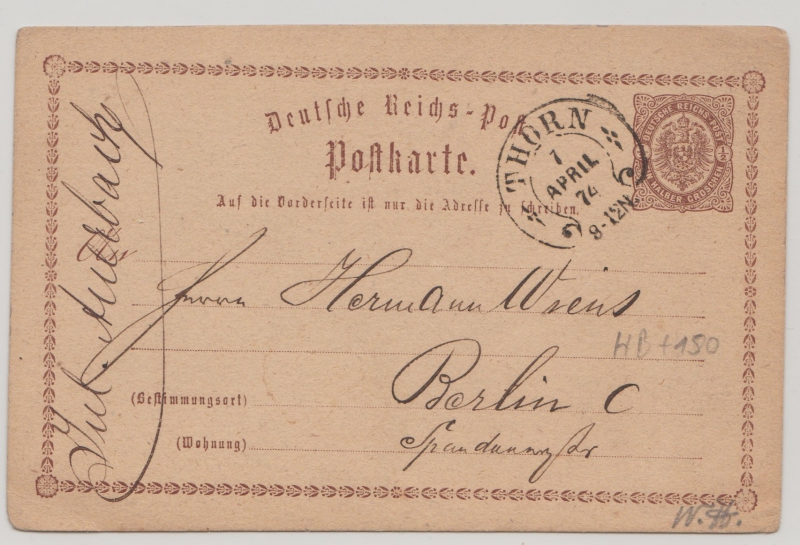 Deutsche Reichs-Post
Postkarte.
Auf die Vorderseite ist nur die Adresse zu schreiben.
THORN
7
APRIL
74
8-12N.
DEUTSCHE REICHS-POST
EIN HALBER GROSCHEN
Jul. Auerbach
Herrn Hermann Wiens
HB+180
(Bestimmungsort) Berlin C
(Wohnung) Spandauerstr
W. St.